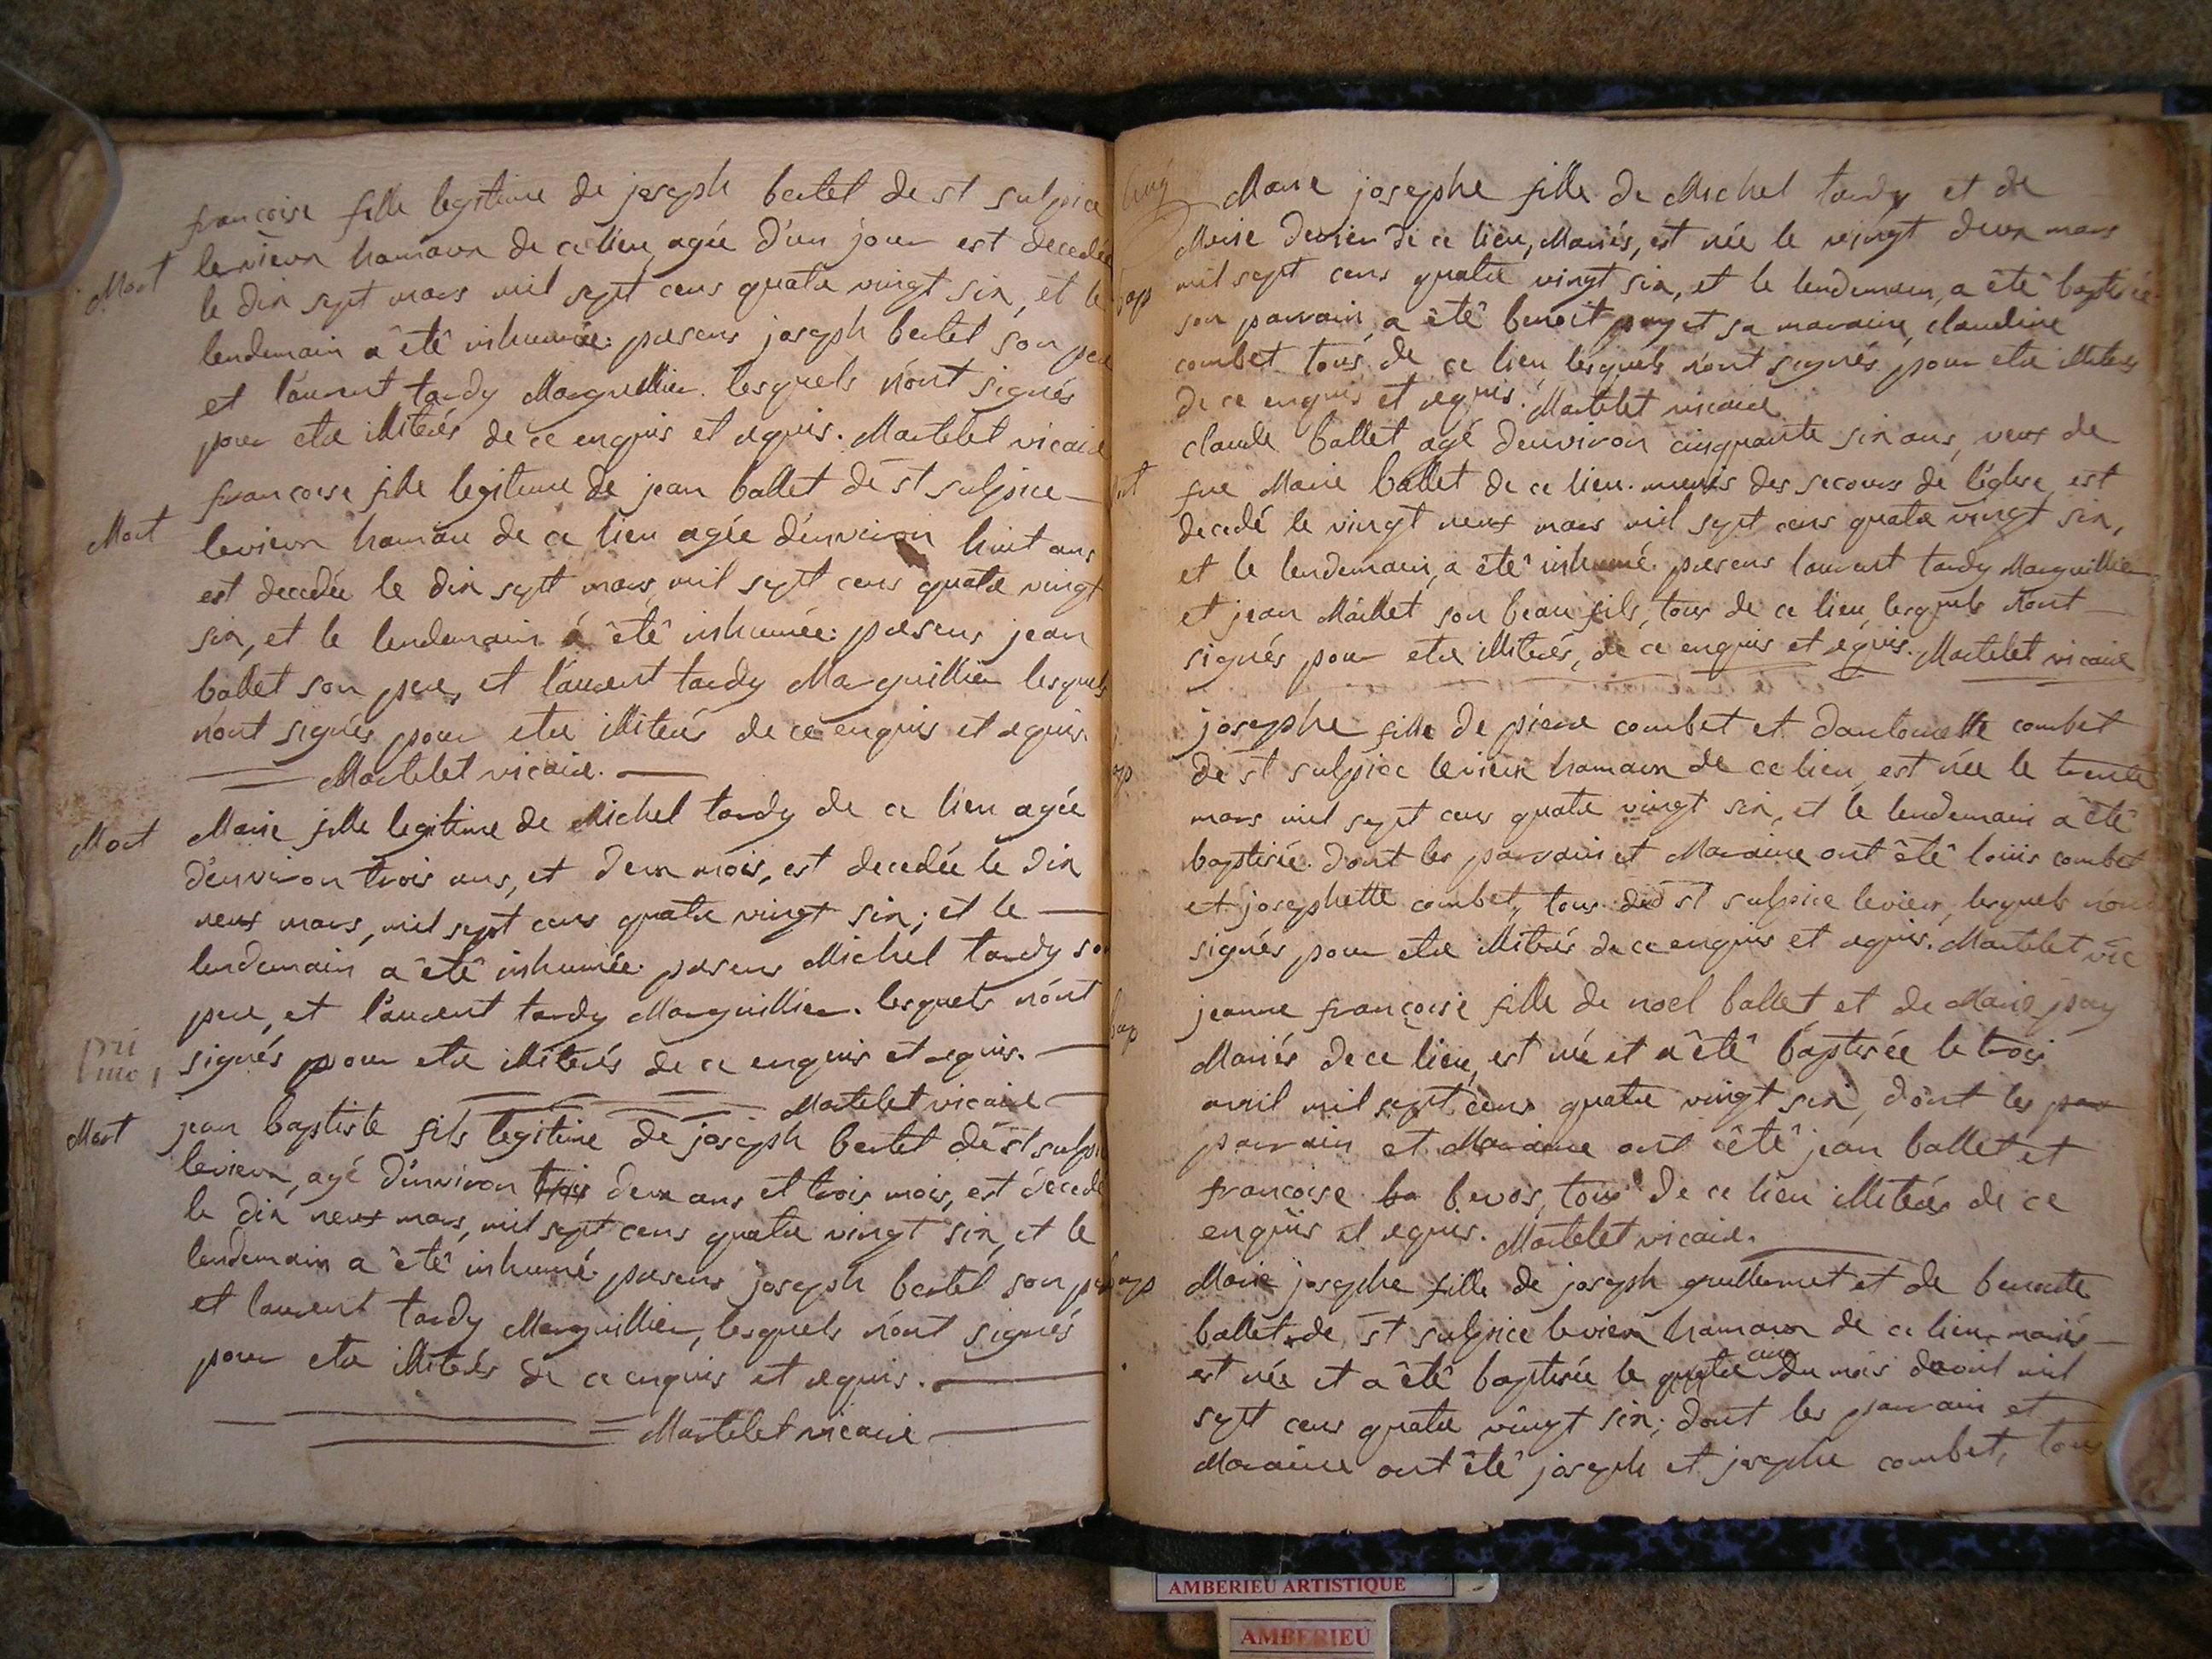 francoise fille legitime de joseph bertet de st sulpice
Mort
levieux hamaux de ce lieu, agée d'un jour est decedée
le dix sept mars mil sept cens quatre vingt six, et le
lendemain a êtê inhumée: presens joseph bertet son pere
et laurent tardy Marguillier. lesquels n'ont signés
pour etre illiterés de ce enquis et requis. Martelet vicaire
francoise fille legitime de jean ballet de st sulpice
Mort
levieux hamau de ce lieu agée d'environ huit ans
est decedée le dix sept mars mil sept cens quatre vingt
six, et le lendemain a êtê inhumée: presens jean
ballet son pere, et laurent tardy Marguillier lesquels
n'ont signés pour etre illiterés de ce enquis et requis.
Martelet vicaire.
Mort
Marie fille legitime de Michel tardy de ce lieu agée
d'environ trois ans, et deux mois, est decedée le dix
neuf mars, mil sept cens quatre vingt six; et le
lendemain a êtê inhumée. presens Michel tardy son
pere, et laurent tardy Marguillier. lesquels n'ont
signés pour etre illiterés de ce enquis et requis.
Martelet vicaire
Mort
jean baptiste fils legitime de joseph bertet de st sulpice
levieux, agé d'environ trois deux ans et trois mois, est decedé
le dix neuf mars, mil sept cens quatre vingt six, et le
lendemain a êtê inhumé. presens joseph bertet son pere
et laurent tardy Marguillier, lesquels n'ont signés
pour etre illiterés de ce enquis et requis.
Martelet vicaire
Marie josephe fille de Michel tardy et de
Marie de ce lieu, Mariés, est née le vingt deux mars
bap
mil sept cens quatre vingt six, et le lendemain, a êtê baptisée
son parrain, a êtê benoit puy et sa maraine, claudine
combet tous de ce lieu lesquels n'ont signés pour etre illiterés
de ce enquis et requis. Martelet vicaire
claude ballet agé d'environ cinquante six ans, veuf de
feue Marie ballet de ce lieu. munis des secours de l'église, est
decedé le vingt neuf mars mil sept cens quatre vingt six,
et le lendemain, a êtê inhumé. presens laurent tardy Marguillier
et jean Maillet son beau fils, tous de ce lieu, lesquels n'ont
signés pour etre illiterés, de ce enquis et requis. Martelet vicaire
josephe fille de pierre combet et d'antoinette combet
de st sulpice levieux hamaux de ce lieu, est née le trente
mars mil sept cens quatre vingt six, et le lendemain a êtê
baptisée. dont les parrain et Maraine ont êtê louis combet
et josephette combet, tous dud st sulpice levieux, lesquels n'ont
signés pour etre illiterés de ce enquis et requis. Martelet vic
bap
jeanne françoise fille de noel ballet et de Marie puy
Mariés de ce lieu, est née et a êtê baptisée le trois
avril mil sept cens quatre vingt six, dont les par
parrain et Maraine ont êtê jean ballet et
francoise bevos, tous de ce lieu illiterés de ce
enquis et requis. Martelet vicaire.
bap
Marie josephe fille de joseph guillermet et de benoite
ballet de st sulpice levieux hamaux de ce lieu mariés
est née et a êtê baptisée le quatre cinq du mois d'avril mil
sept cens quatre vingt six; dont les parrain et
Maraine ont êtê joseph et josephe combet, tous
AMBERIEU ARTISTIQUE
AMBERIEU